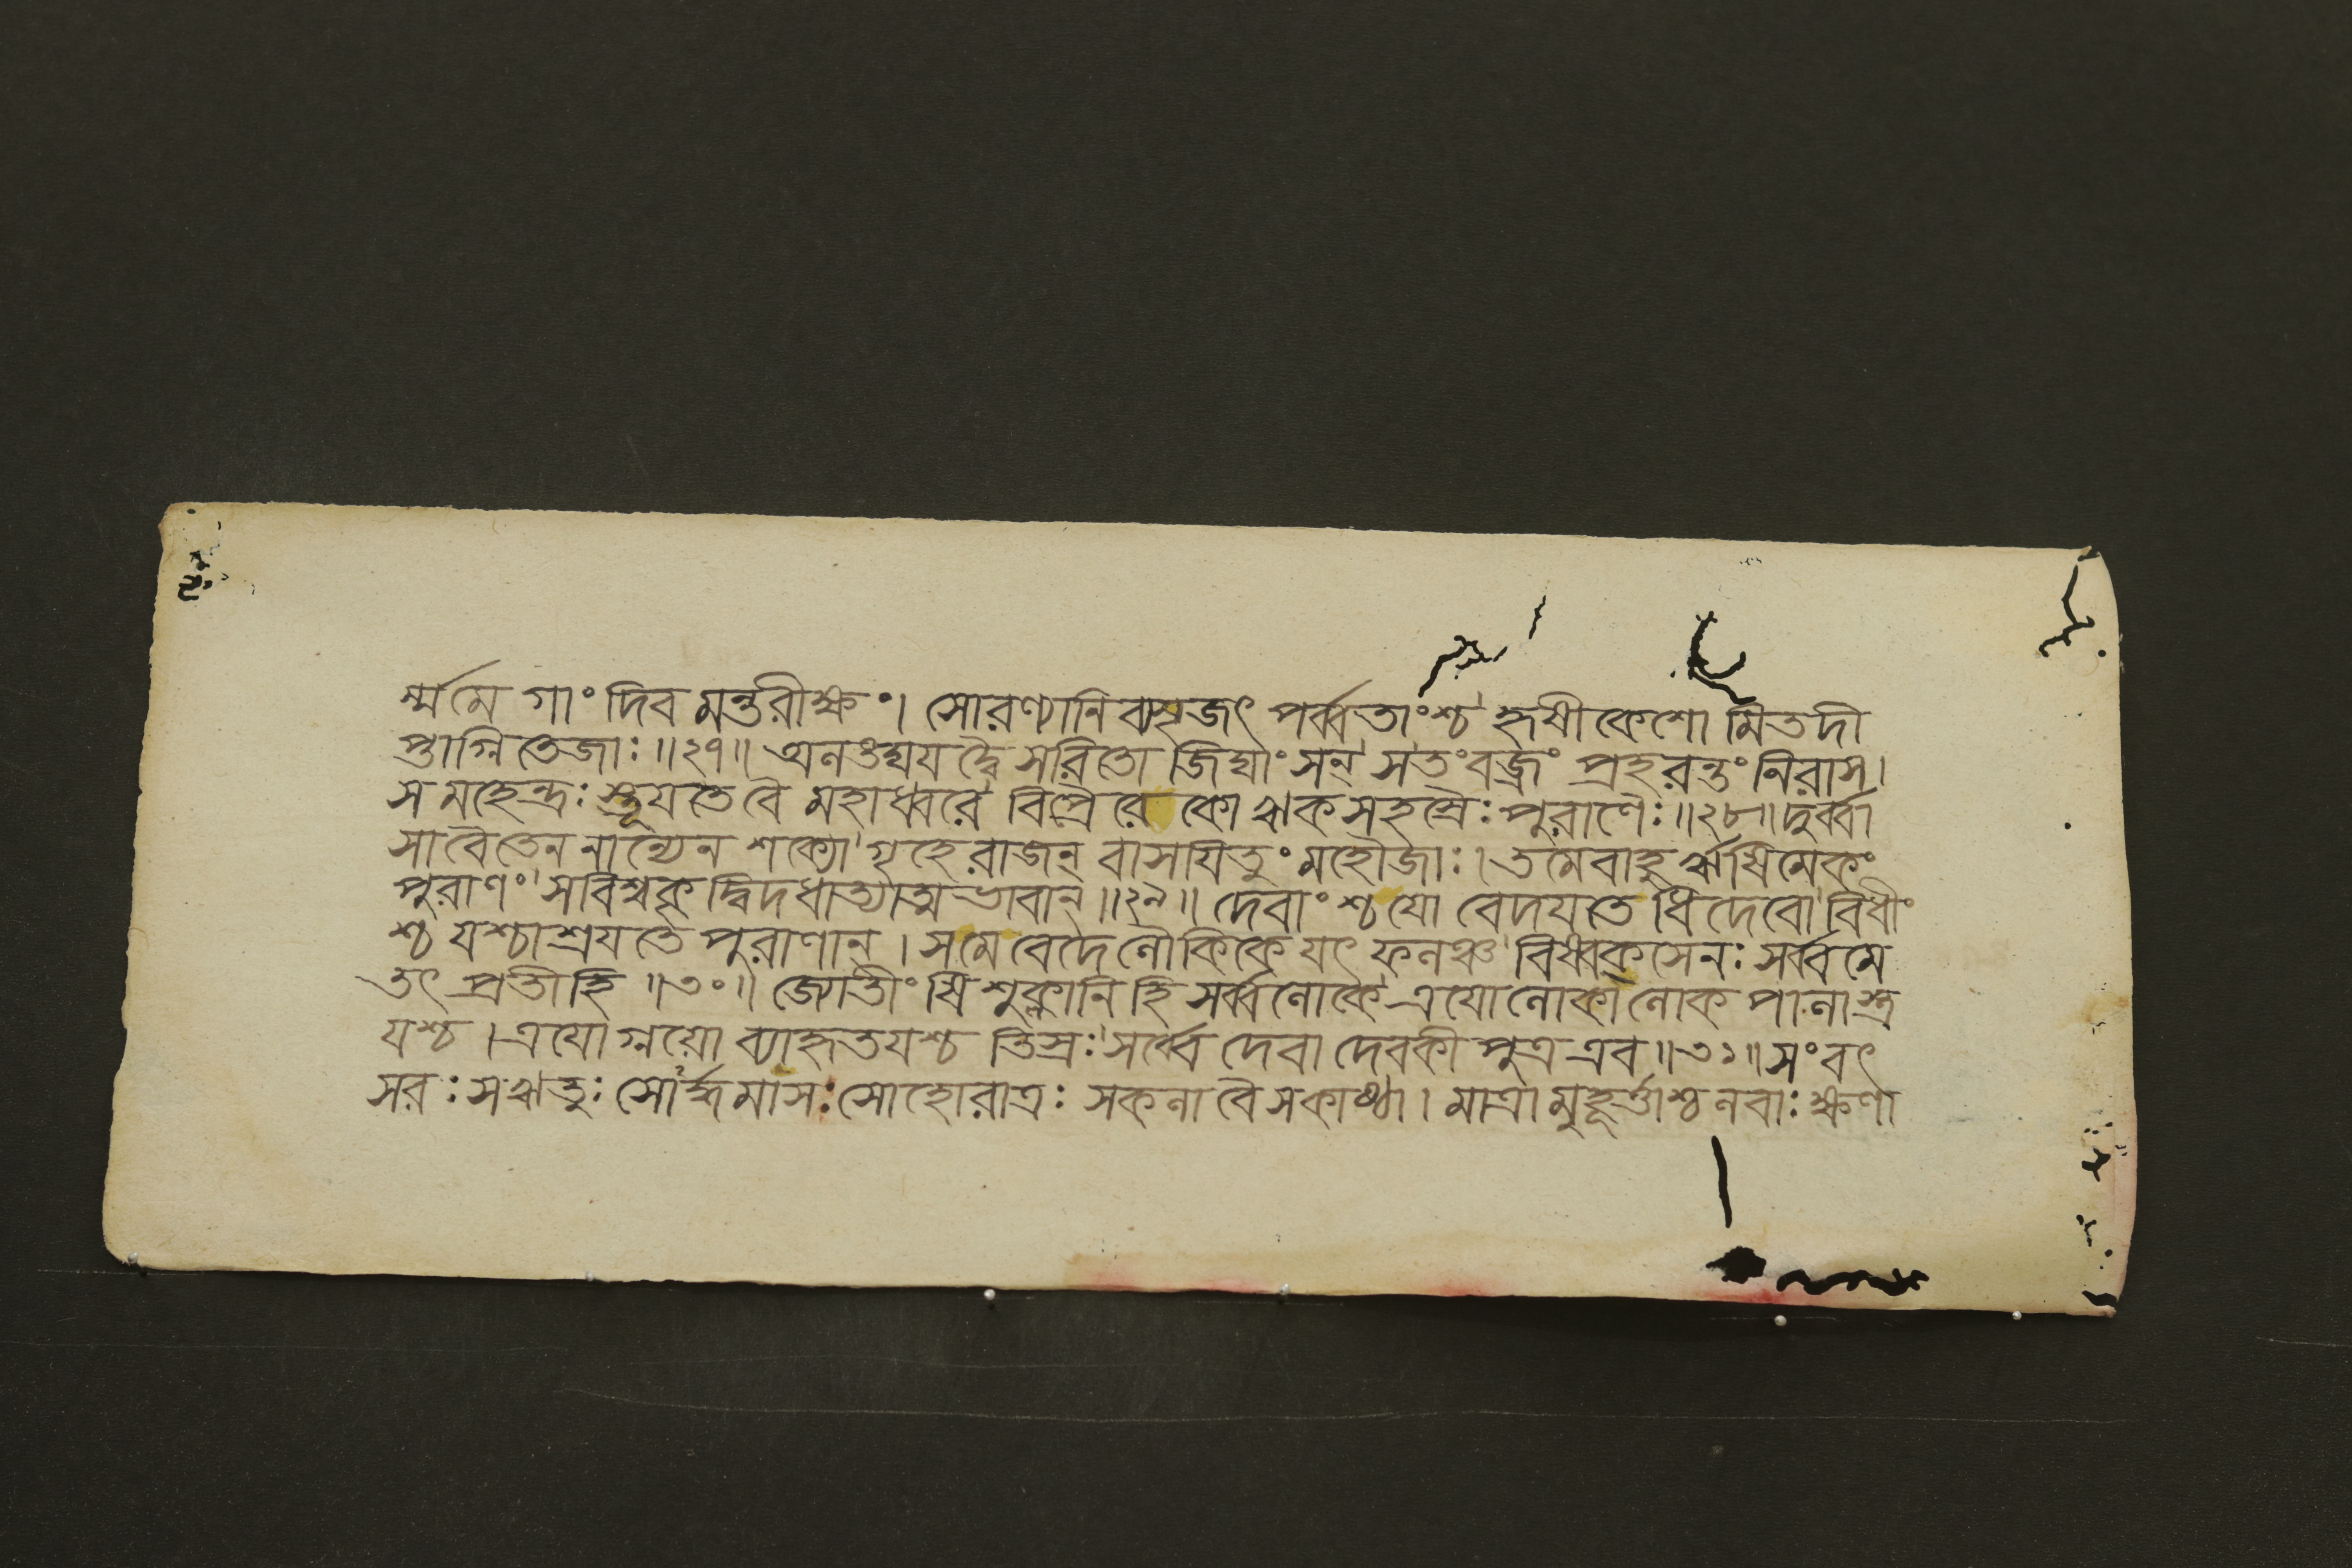 র্ম্মমে গাং দিব মন্তরীক্ষং। সোরণ্যানি ব্যসৃজৎ পর্ব্বতাংশ্চ হৃষীকেশো মিতদী
প্তাগ্নিতেজাঃ॥২৭॥ অনঙঘ্যযদ্বৈ সরিতো জিঘাংসন্ সতং বজ্রং প্রহরন্তং নিরাস।
স মহেন্দ্রঃ স্তূযতে বৈ মহাধ্বরে বিপ্রৈরেকো ঋকসহস্রৈঃ পুরাণৈঃ॥২৮॥ দুর্ব্বা
সাবৈতেন নান্যেন শক্যো গৃহে রাজন্ বাসযিতুং মহৌজাঃ। তমেবাহু র্ঋষিমেকং
পুরাণং সবিশ্বকৃদ্বিদধাত্যাত্মভাবান্॥২৯॥ দেবাংশ্চ যো বেদযতে ধিদেবো বিধীং
শ্চ যশ্চাশ্রযতে পুরাণান্। সমে বেদে নৌকিকে যৎ ফনঞ্চ বিষ্বক্সেনঃ সর্ব্বমে
তৎ প্রতীহি॥৩০॥ জ্যোতীংষি শুক্লানি হি সর্ব্বনোকে এযোনোকা নোক পানাস্ত্র
যশ্চ। এযোগ্নয়ো ব্যাহৃতযশ্চ তিস্রঃ সর্ব্বে দেবা দেবকী পুত্র এব॥৩১॥ সংবৎ
সরঃ সঋতুঃ সোর্দ্ধমাসঃ সোহোরাত্রঃ সকনা বৈ সকাষ্ঠা। মাত্রা মুহূর্ত্তাশ্চ নবাঃ ক্ষণা